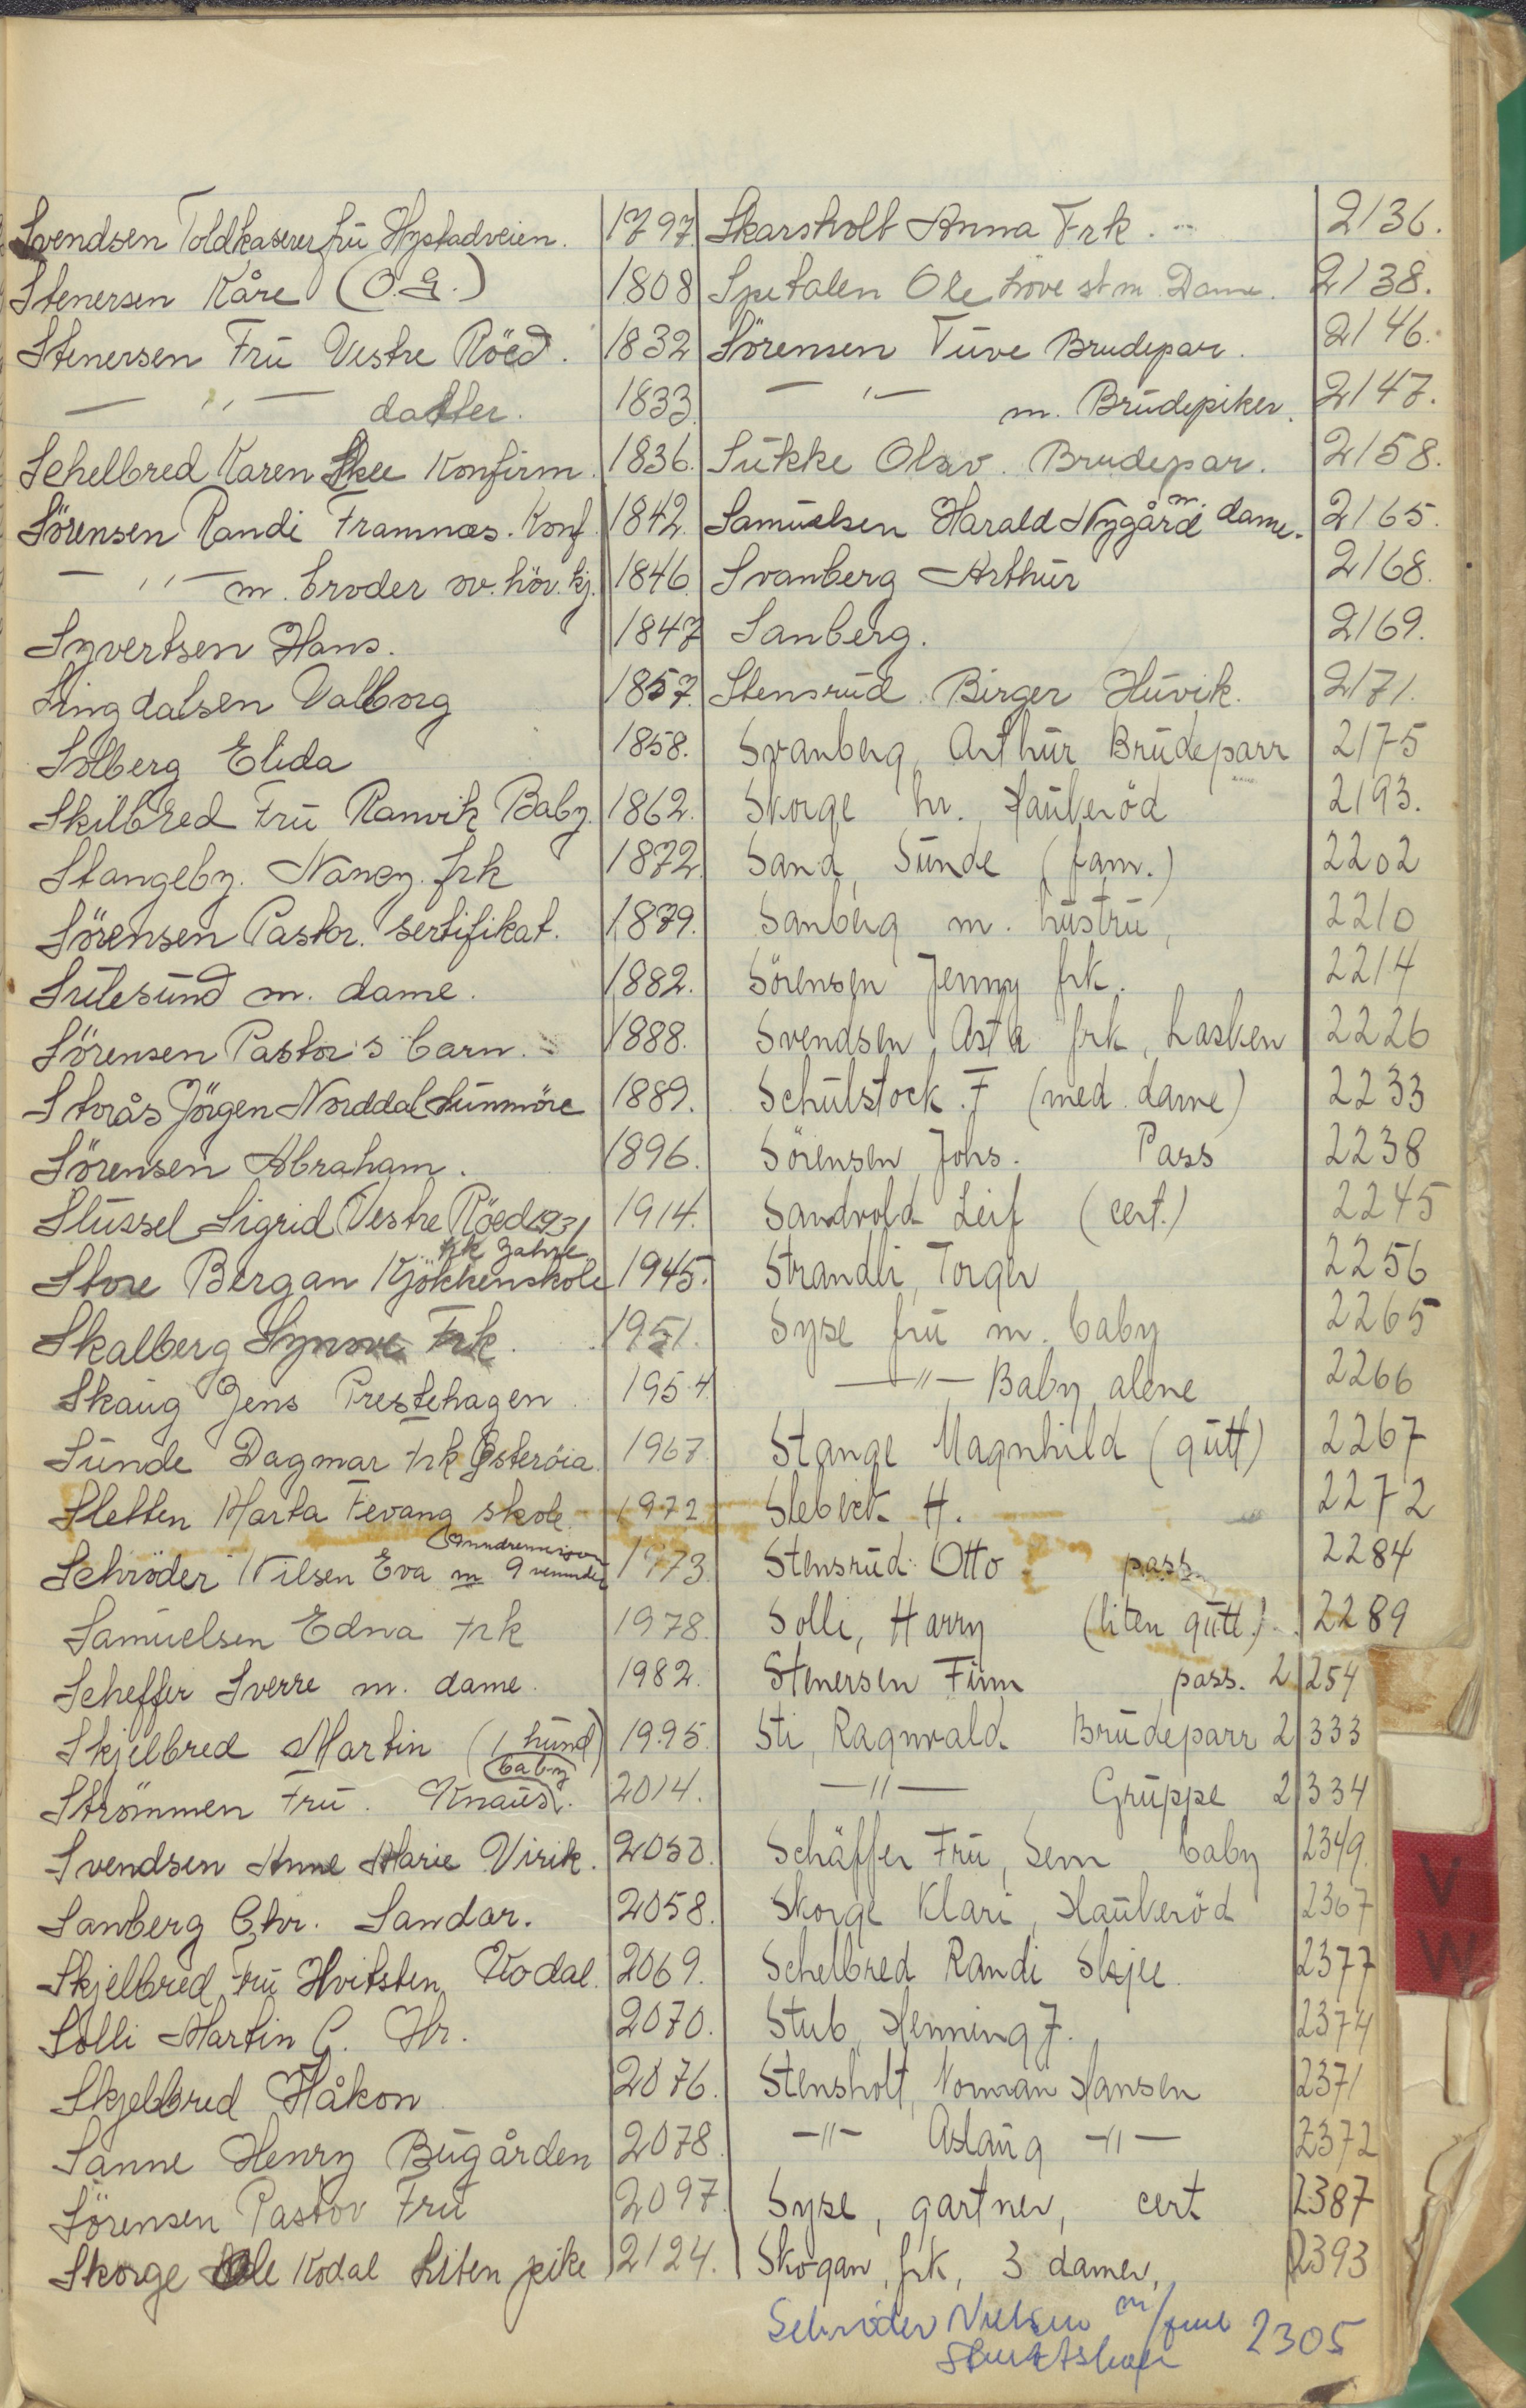 Svendsen Toldkaserer frü Hystadveien. 1797
Stenersen Kåre (O.G.) 1808
Stenersen Frü Vestre Röed. 1832
— " — datter. 1833
Schelbred Karen Skee Konfirm. 1836.
Sörensen Randi Framnæs. Konf. 1842.
— " — m. broder ov. höv. kj. 1846.
Syvertsen Hans. 1847
Lingdalsen Valborg 1857.
Solberg Elida 1858.
Skilbred Frü Ranvik Baby. 1862.
Stangeby. Nancy. frk 1872.
Sörensen Pastor. sertifikat. 1879.
Sülesünd m. dame. 1882.
Sörensen Pastor's barn. 1888.
Storås Jörgen Norddal Sünmöre 1889.
Sörensen Abraham. 1896.
Stüssel Sigrid Vestre Röed 1931 1914.
frk Jahre
Store Bergan Kjökkenskole 1945.
Skalberg Synove Frk. 1951.
Skaug Jens Prestehagen 1954.
Sünde Dagmar frk Österöia. 1967
Sletten Marta Fevang skole. 1972
Schröder Nilsen Eva m 9 veninder 1973.
Samüelsen Edna frk 1978.
Scheffer Sverre m. dame. 1982.
Skjelbred Martin (1 hünd) 1995.
baby
Strömmen Frü. Knaus. 2014.
Svendsen Anne Marie Virik. 2050.
Sanberg Chr. Sandar. 2058.
Skjelbred Frü Hvitsten Kodal. 2069.
Solli Martin C. Hr. 2070.
Skjelbred Håkon 2076.
Sanne Henry Bügården 2078
Sörensen Pastor Frü 2097.
Skorge Ole Kodal Liten pike 2124.
Skarsholt Anna Frk. 2136.
Spetalen Ole Höve st m Dame. 2138.
Sörensen Tüve Brudepar. 2146.
— " — m. Brüdepiker. 2147.
Sükke Olav. Brudepar. 2158.
Samüelsen Harald Nygård m. dame. 2165.
Svanberg Arthür 2168.
Sanberg. 2169.
Stensrüd Birger Hüvik. 2171.
Svanberg, Arthür Brüdeparr 2175
Skorge hr., Haükeröd 2193.
Sand, Sünde (fam.) 2202
Sanberg m. hüstrü, 2210
Sörensen Jenny frk. 2214
Svendsen, Asta frk, Lasken 2226
Schülstock. F (med dame) 2233
Sörensen Johs. Pass 2238
Sandvold Leif (cert.) 2245
Strandli, Torger 2256
Syse frü m. baby 2265
— " — Baby alene 2266
Stange Magnhild (gütt) 2267
H. 2272
Stensrüd Otto pass. 2284
Solli, Harry (liten gütt.) 2289
Stenersen Finn pass. 2254
Sti, Ragnvald Brüdeparr 2333
— " — Grüppe 2334
Schäffer Frü, Sem baby 2349.
Skorge Klari, Haükeröd 2367
Schelbred Randi Skjee. 2377
Stub, Henning J. 2374
Stensholt, Norman Hansen 2371
— " — Aslaüg — " — 2372
Syse, gartner, cert 2387
Skogan, frk, 3 damer, 2393
Schröder Nielsen m/ 2305
V
W